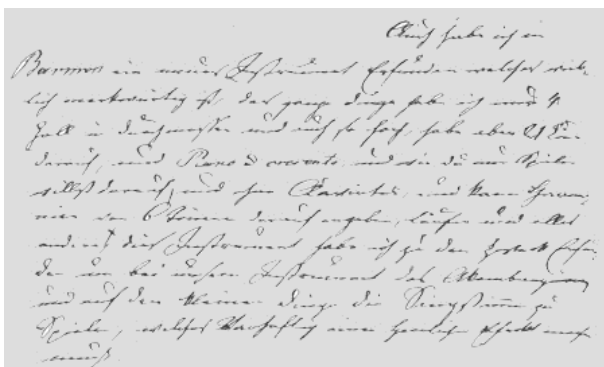 Auch habe ich in
Barmen ein neues Instrument Erfunden welches wirk-
lich merkwürdig ist, das ganze dinge habe ich nur 4
Zoll in durchmesser und auch so hoch, habe aber 21 Tön
darauf, und Piano & crescento, und wie du nur Spielen
willst darauf, und ohne Claviatur, und kann Harmo-
nien von 6 Tönen darauf angeben, läufer und alles
andere, dies Instrument habe ich zu den Zweck Erfun-
den um bei unsern Instrument das
und auf den kleinen dinge die Singstimme zu
Spielen, welches einen herrlichen Efect machen
muß